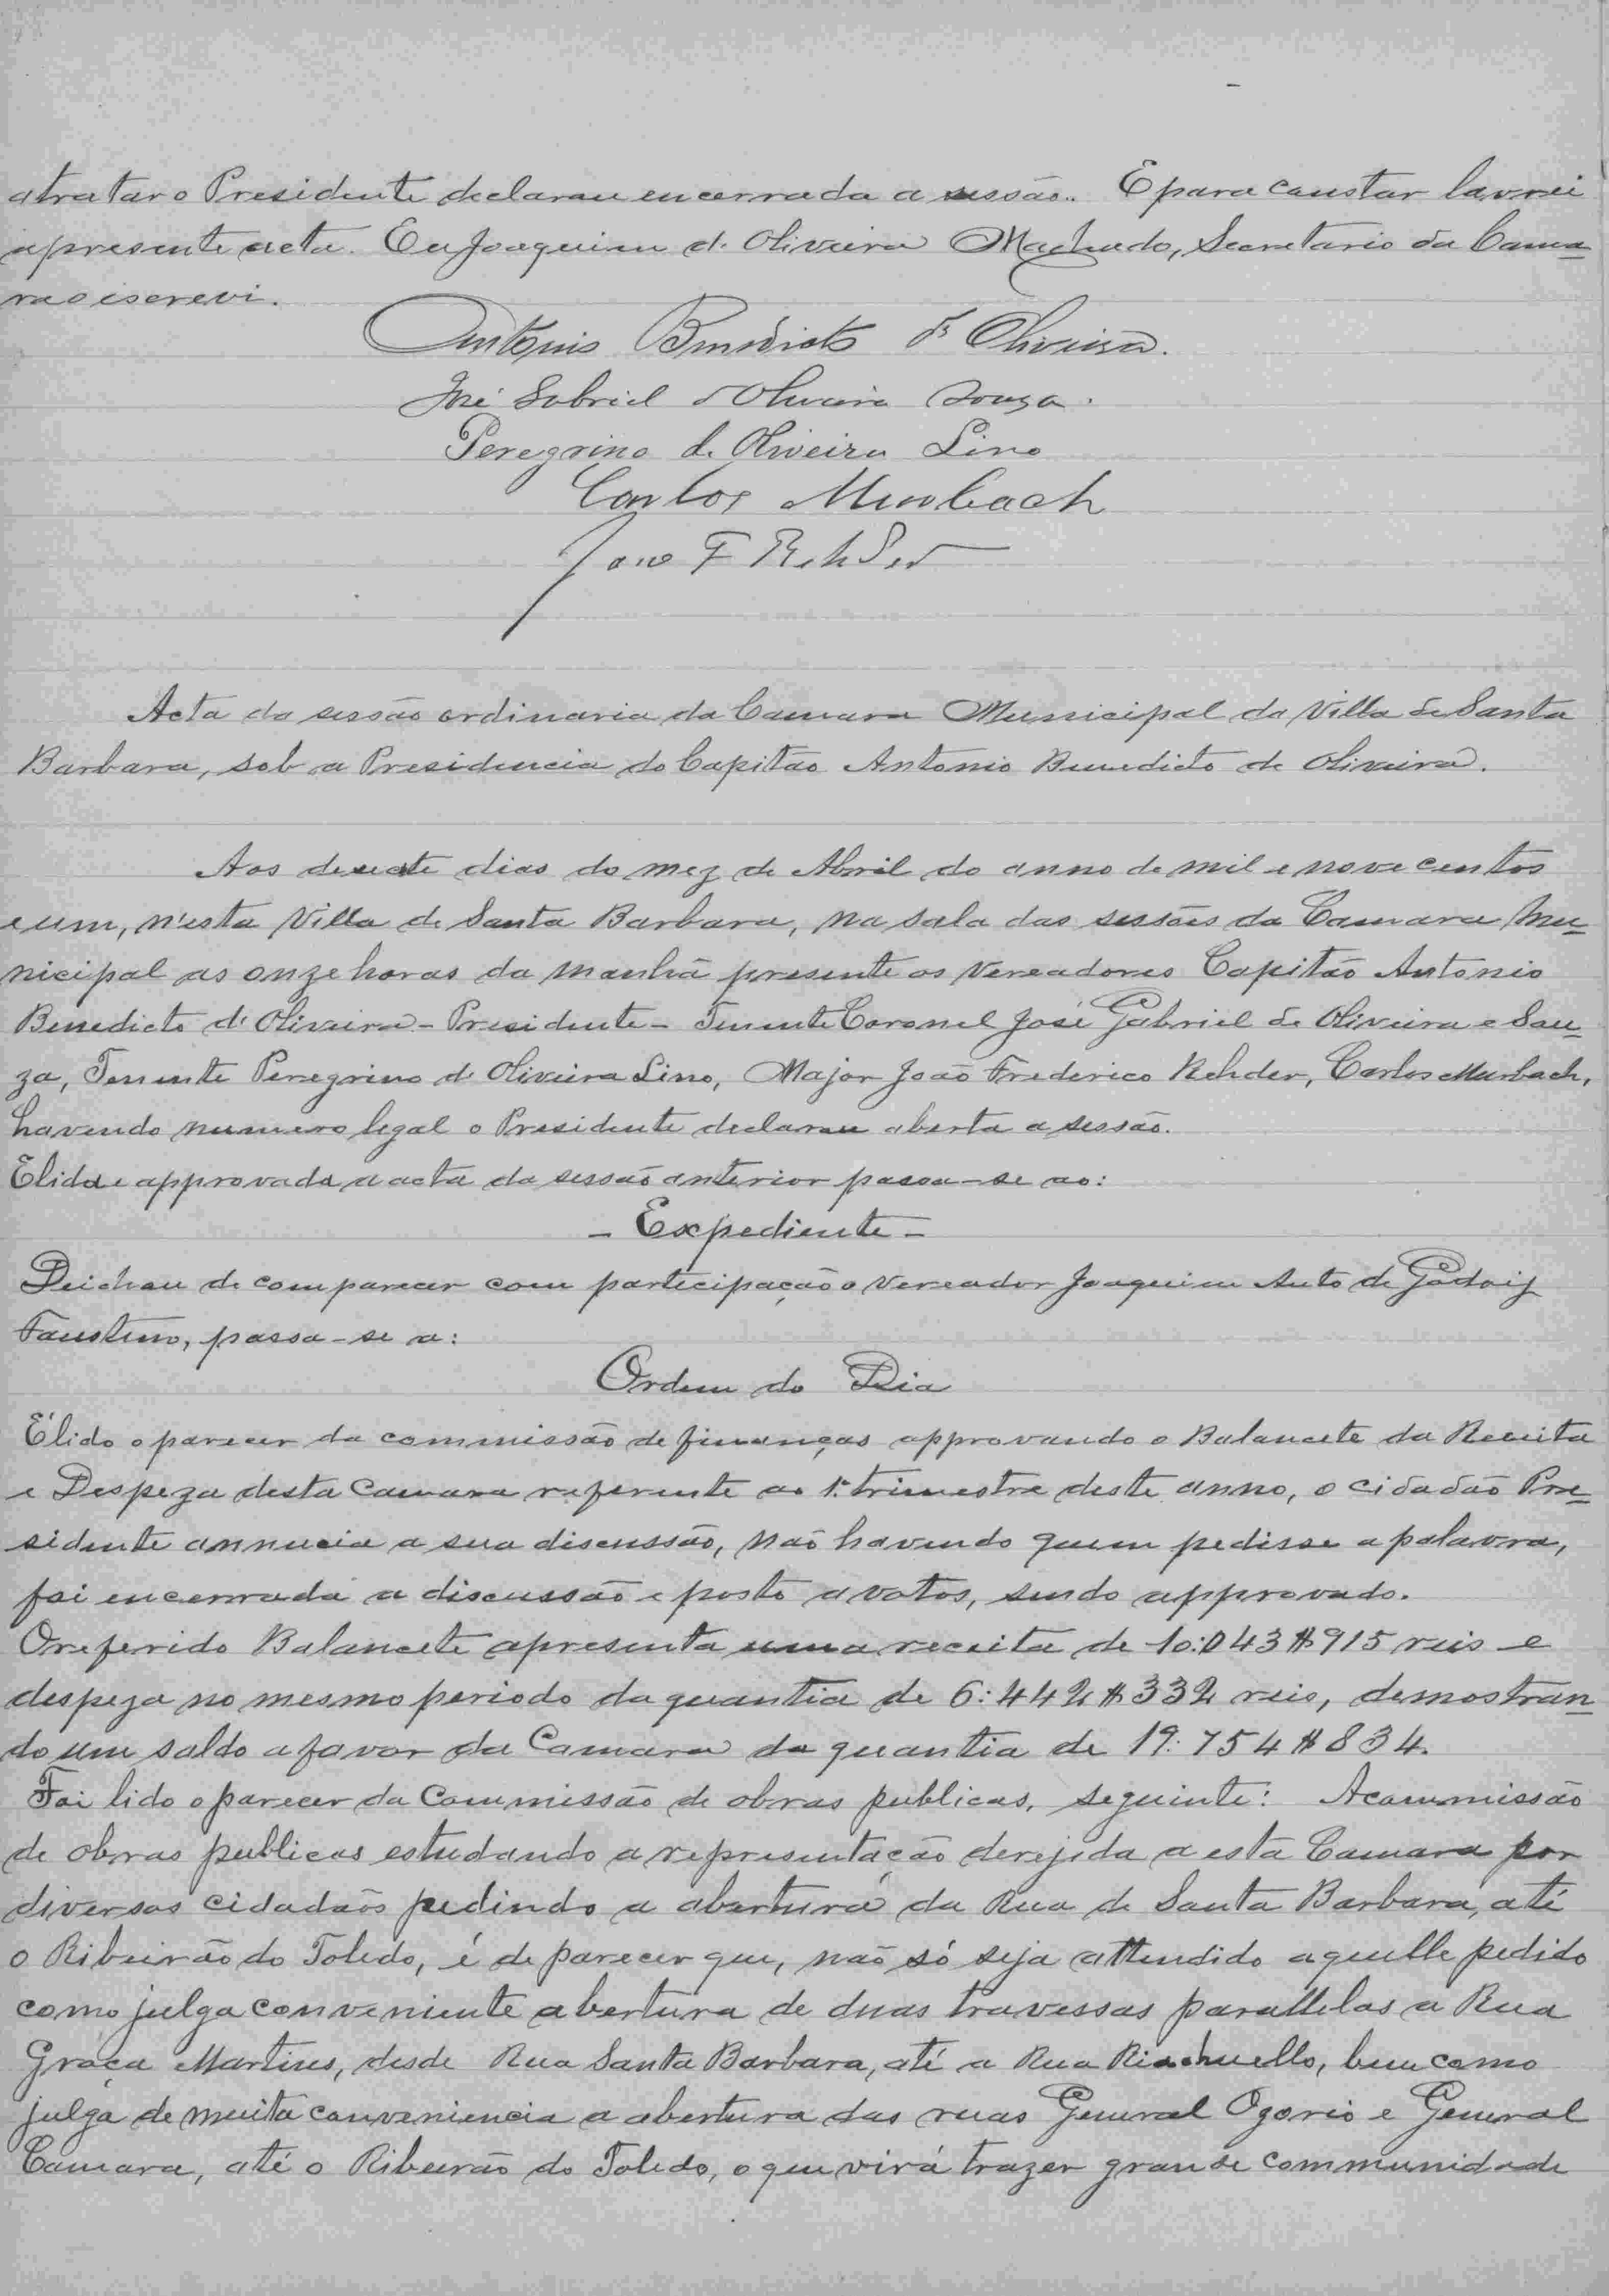 a tratar o Presidente declarou encerrada a sessão. E para constar lavrei
a presente acta. Eu Joaquim de Oliveira Machado, Secretario da Cama=
ra o escrevi.
Antonio Benedicto de Oliveira.
José Gabriel d'Oliveira Souza.
Peregrino de Oliveira Lino
Carlos Murbach
João F Rehder
Acta da sessão ordinaria da Camara Municipal da Villa de Santa
Barbara, sob a Presidencia do Capitão Antonio Benedicto de Oliveira.
Aos desecete dias do mez de Abril do anno de mil e nove centos
e um, n'esta Villa de Santa Barbara, na sala das sessões da Camara Mu=
nicipal as onze horas da manhã presente os Vereadores Capitão Antonio
Benedicto d'Oliveira - Presidente - Tenente Coronel José Gabriel de Oliveira e Sou=
za, Tenente Peregrino de Oliveira Lino, Major João Frederico Rehder, Carlos Murbach,
havendo numero legal o Presidente declarou aberta a sessão.
E lida e approvada a acta da sessão anterior passa-se ao:
- Expediente -
Deichou de comparecer com participação o Vereador Joaquim Anto de Godoiz
Faustino, passa-se a:
Ordem do Dia
É lido o parecer da commissão de finanças approvando o Balancete da Receita
e Despeza desta Camara referente ao 1º trimestre deste anno, o cidadão Pre=
sidente annucia a sua discussão, não havendo quem pedisse a palavra,
foi encerrada a discussão e posto a votos, sendo approvado.
O referido Balancete apresenta uma receita de 10:043$915 reis e
despeza no mesmo periodo da quantia de 6:442$332 reis, demostran=
do um saldo a favor da Camara da quantia de 19:754$834.
Foi lido o parecer da Commissão de obras publicas, seguinte: A commissão
de obras publicas estudando a representação derejida a esta Camara por
diversos cidadãos pedindo a abertura da Rua de Santa Barbara, até
o Ribeirão do Toledo, é de parecer que, não só seja attendido aquelle pedido
como julga conveniente abertura de duas travessas parallelas a Rua
Graça Martins, desde Rua Santa Barbara, até a Rua Riachuello, bem como
julga de muita conveniencia a abertura das ruas General Ozorio e General
Camara, até o Ribeirão do Toledo, o que virá trazer grande communidade